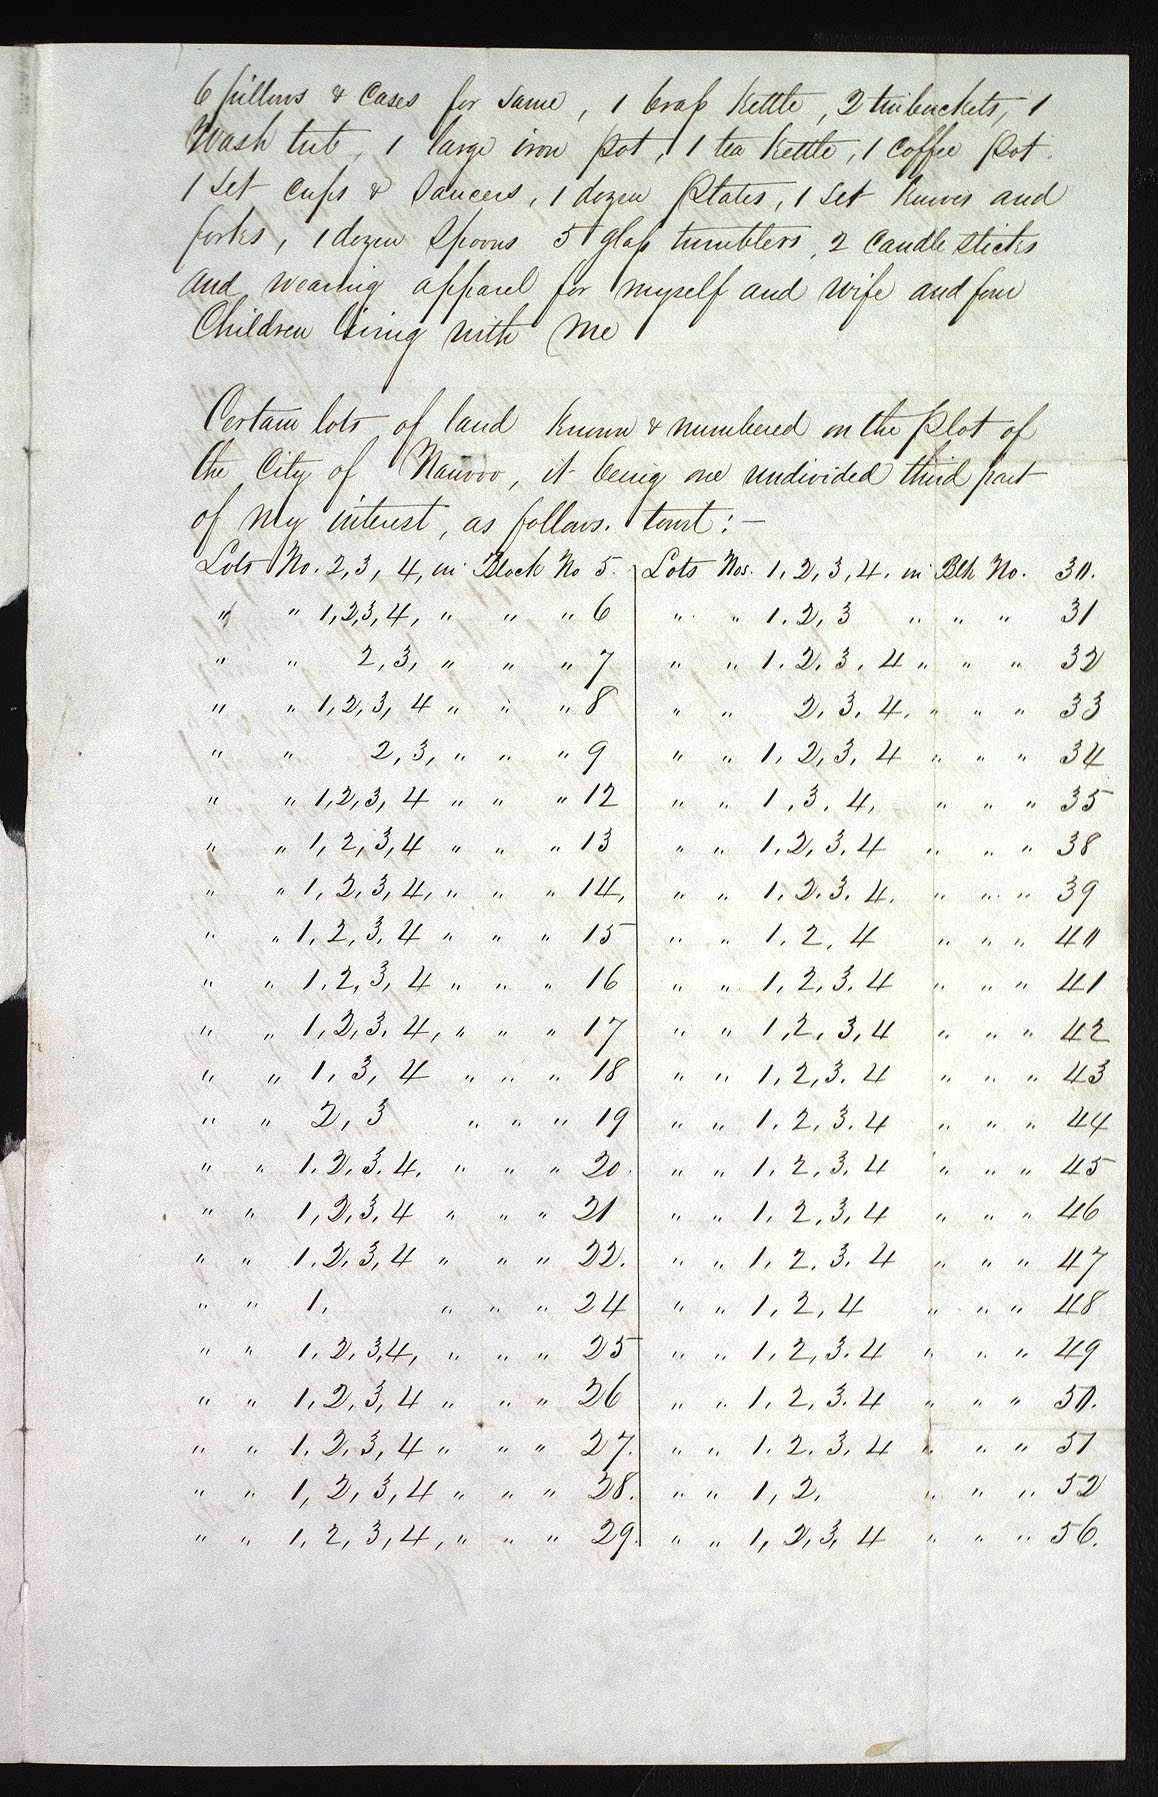 6 pillows & Cases for same, 1 brass Kettle, 2 tin buckets, 1
Wash tub, 1 large iron pot, 1 tea Kettle, 1 Coffee Pot.
1 set cups & Saucers, 1 dozen Plates, 1 set knives and
forks, 1 dozen Spoons 5 glass tumblers, 2 Candle sticks
and wearing apparel for myself and wife and four
Children living with Me
Certain lots of land known & numbered on the Plot of
the City of Nauvoo, it being one undivided third part
of my interest, as follows. towit:—
Lots No. 2, 3, 4, in Block No 5. Lots Nos. 1, 2, 3, 4. in Blk No. 30.
" " 1,2,3,4, " " " 6 " " 1. 2, 3 " " " 31
" " 2, 3, " " " 7 " " 1. 2, 3. 4 " " " 32
" " 1,2,3, 4 " " " 8 " " 2, 3. 4. " " " 33
" " 2,3, " " " 9 " " 1, 2, 3, 4 " " " 34
" " 1,2,3, 4 " " " 12 " " 1, 3. 4, " " " 35
" " 1, 2, 3, 4 " " " 13 " " 1. 2, 3. 4 " " " 38
" " 1, 2, 3, 4, " " " 14, " " 1. 2. 3. 4. " " " 39
" " 1, 2, 3, 4 " " " 15 " " 1. 2, 4 " " " 40
" " 1, 2, 3, 4 " " " 16 " " 1, 2, 3. 4 " " " 41
" " 1, 2, 3. 4, " " " 17 " " 1, 2, 3, 4 " " " 42
" " 1, 3, 4 " " " 18 " " 1, 2, 3. 4 " " " 43
" " 2, 3 " " " 19 " " 1. 2, 3. 4 " " " 44
" " 1. 2, 3. 4. " " " 20. " " 1. 2, 3, 4 " " " 45
" " 1, 2, 3. 4 " " " 21 " " 1. 2, 3, 4 " " " 46
" " 1. 2, 3, 4 " " " 22. " " 1. 2, 3. 4 " " " 47
" " 1. " " " 24 " " 1, 2, 4 " " " 48
" " 1. 2, 3,4, " " " 25 " " 1, 2, 3. 4 " " " 49
" " 1, 2, 3, 4 " " " 26 " " 1. 2, 3. 4 " " " 50.
" " 1. 2, 3, 4 " " " 27. " " 1. 2. 3. 4 " " " 51
" " 1, 2, 3, 4 " " " 28. " " 1, 2. " " " 52
" " 1, 2, 3, 4, " " " 29. " " 1, 2, 3, 4 " " " 56.